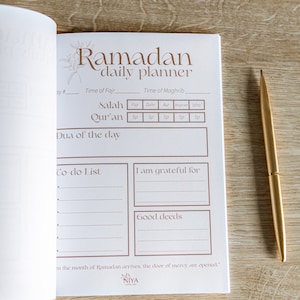 Ramadan
daily planner
Time of Fajr Time of Maghrib
Salah
Qur'an
Dua of the day
To do List
I am grateful for
Good deeds
in the month of Ramadan arrives, the doors of mercy are opened."
NIYA